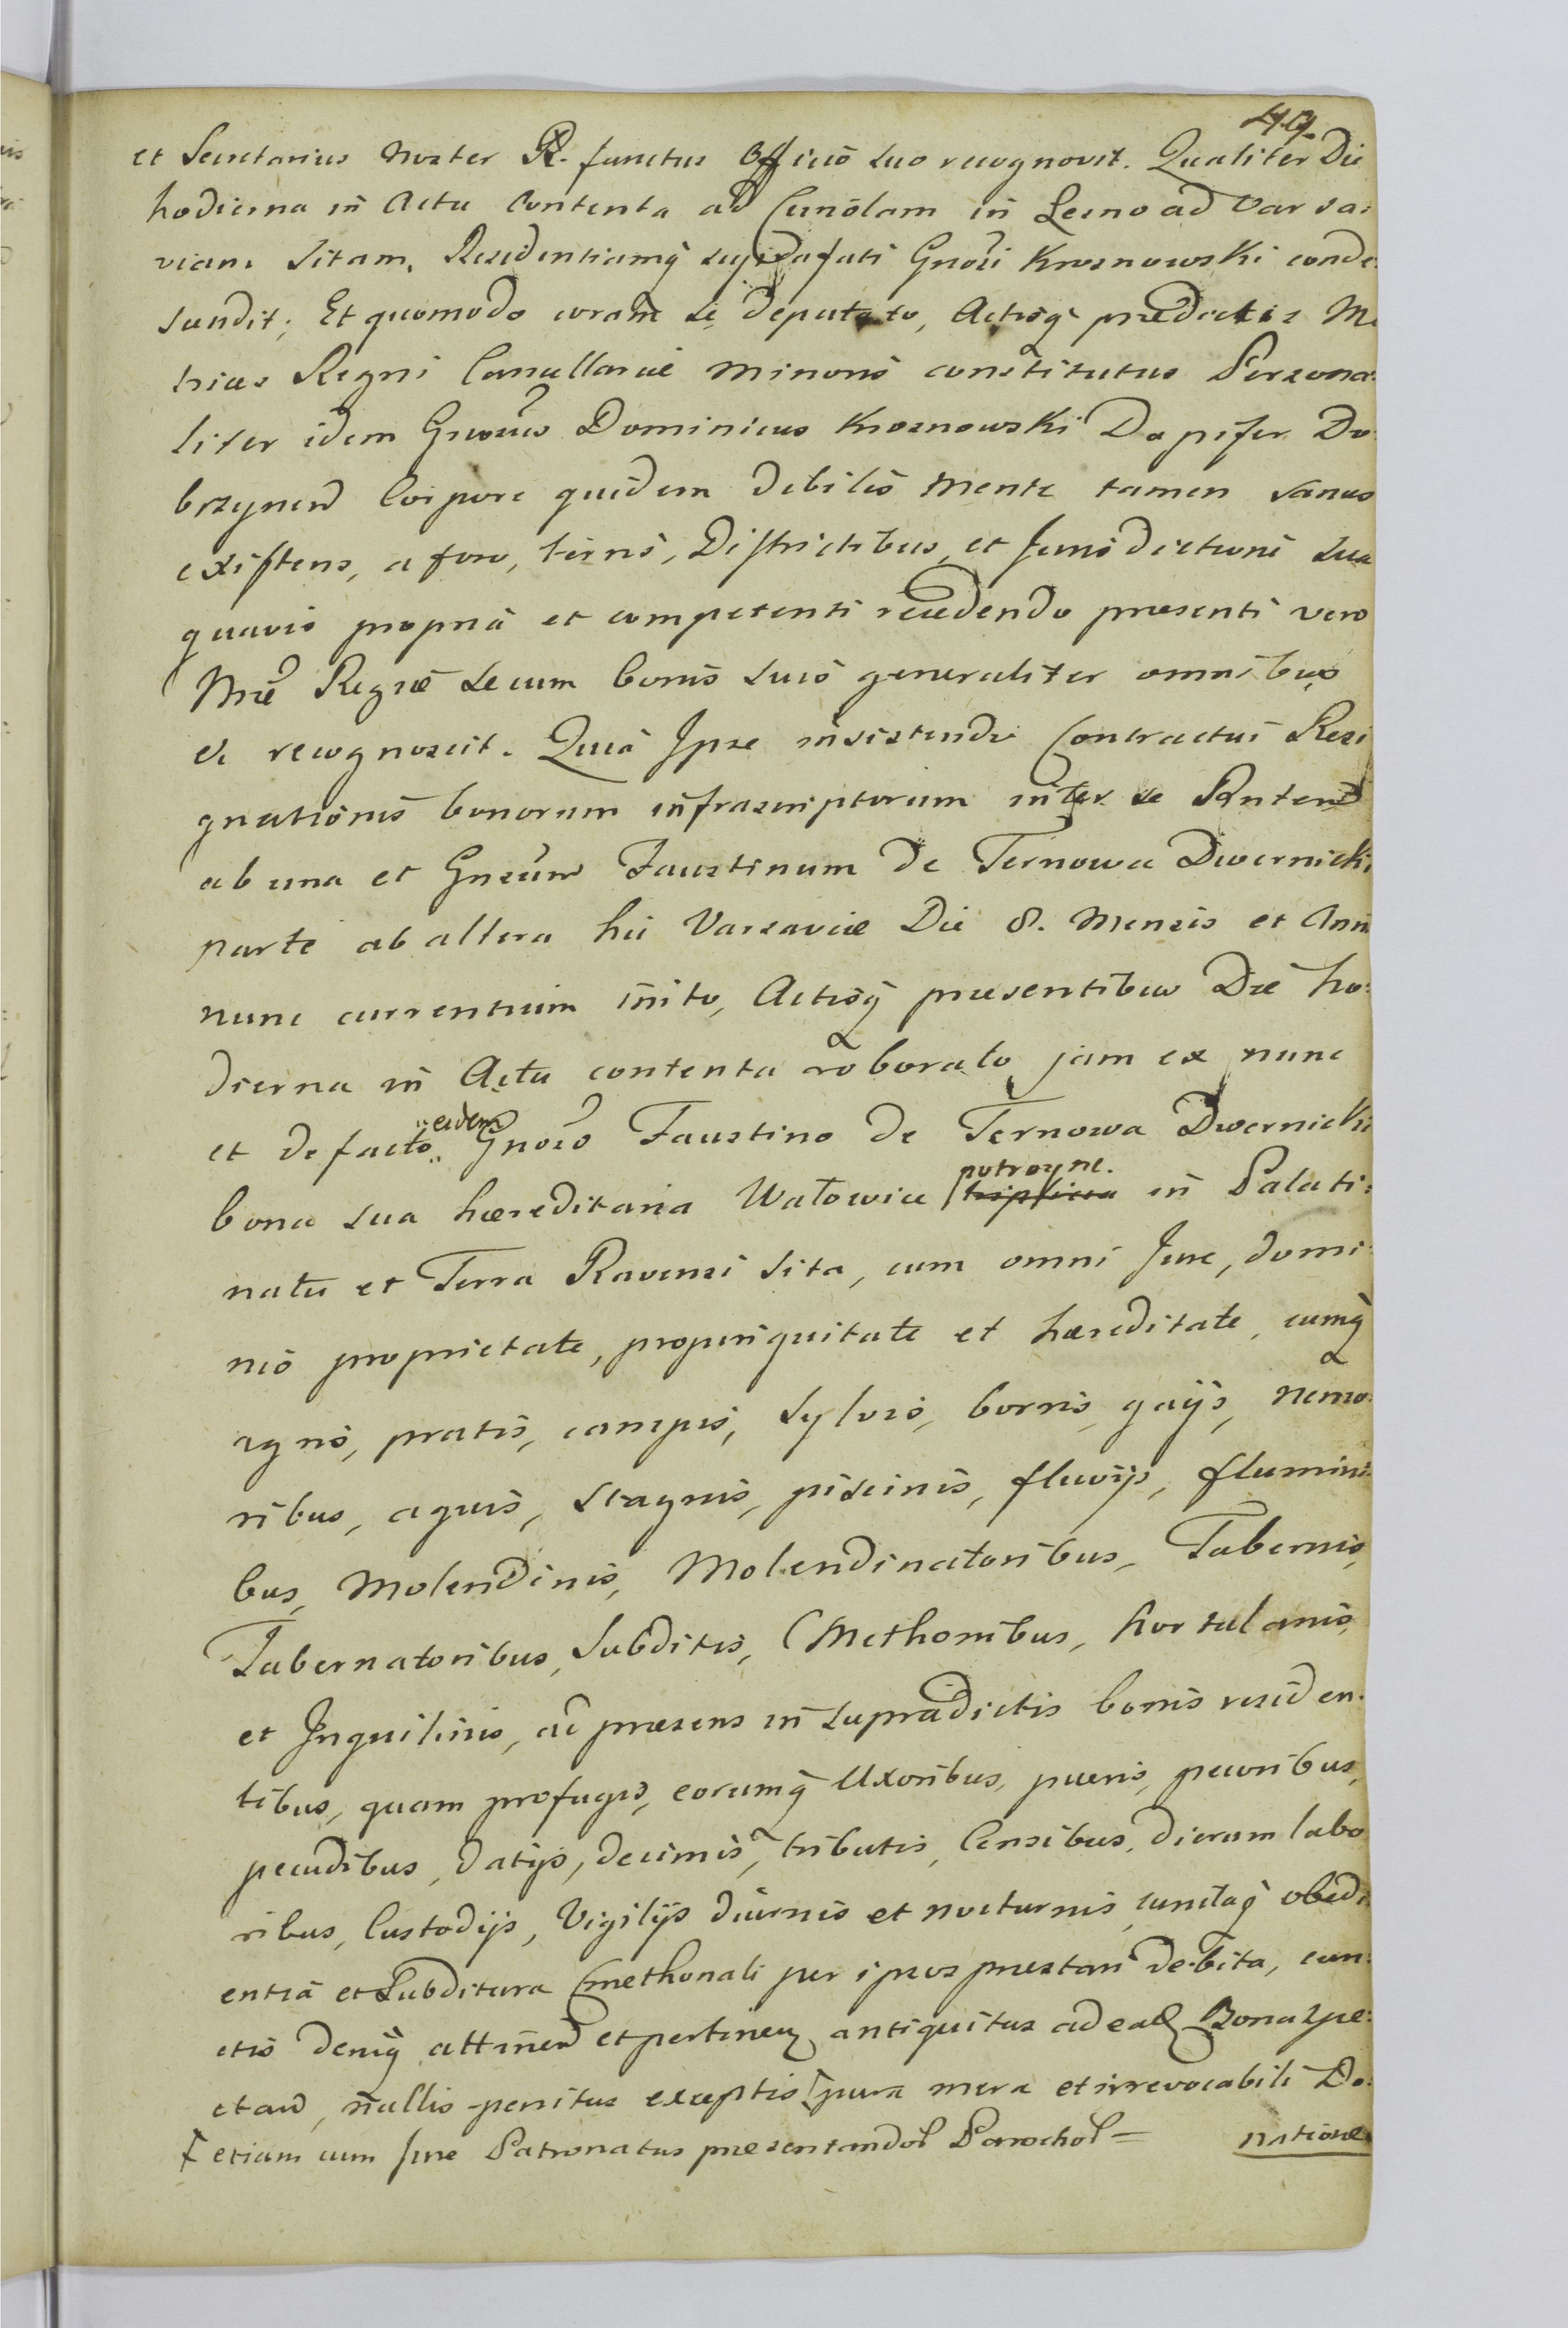 49.
et Secretarius noster R. functus Officio suo recognovit. Qualiter Die
hodierna in Actu Contenta ad Curiolam in Lesno ad Varsa:
viam sitam, Residentiamq̀ supradfati Gnosi Krosnowski conde:
sundit; Et quomodo coram se deputato, Actisq̀ prædictis Me
tricæs Regni Cancellariæ Minoris constitutus Persona:
liter idem Gnosus Dominicus Krosnowski Dapifer Do:
brzynen Corpore quidem debilis mente tamen sanus
existens, a foro, terris, Districtibus, et Jurisdictioni sua
quavis propria et competenti recedendo præsenti vero
Mræ Regræ se cum bonis suis generaliter omnibus
et recognoscit. Quia Ipse insistendo Contractui Resi
gnationis bonorum infrascriptorum inter se Rnten
ab una et Gnosum Faustinum de Ternowa Dwernicki
parte ab altera hic Varsaviæ Die 8. Mensis et Ann
nunc currentium inito, Actisq̀ præsentibus Die ho:
dierna in Actu contenta roborato jam ex nunc
et de facto eidem Gnoso Faustino de Ternowa Dwernicki
bona sua hæreditaria Wałowice triplicia potroyne. in Palati:
natu et Terra Ravensi sita, cum omni Jure, domi:
nio proprietate, propinquitate et hæreditate, cumq̀
agris, pratis, campis, sylvis, borris, gaijs, nemo:
ribus, aquis, stagnis, piscinis, fluvijs, flumini:
bus, Molendinis, Molendinatoribus, Tabernis,
Tabernatoribus, Subditis, Cmethonibus, hortulanis,
et Inquilinis, ad præsens in supradictis bonis residen:
tibus, quam profugis, eorumq̀ Uxoribus, pueris, pecoribus,
pecudibus, datijs, decimis, tributis, Censibus, dierum labo
ribus, Custodijs, Vigilijs diurnis et nocturnis, cunctaq̀ obedi
entia et Subditura Cmethonali per ipsos præstari debita, cun:
ctis deniq̀ attinen et pertinen antiquitus ad ead Bona spe:
ctan, nullis penitus exceptis pura mera et irrevocabili Do:
etiam cum Jure Patronatus præsentandol Parochol = natione